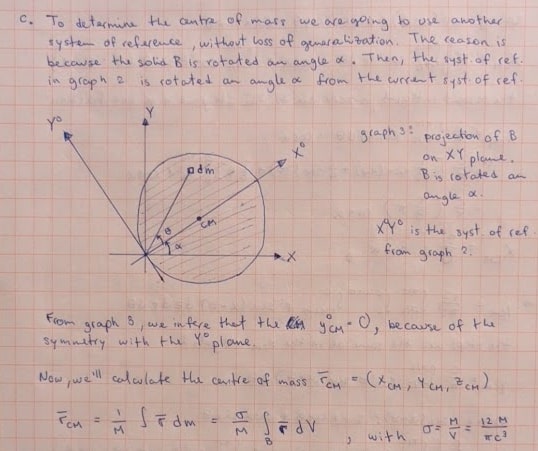 c. To determine the centre of mass we are going to use another
system of reference, without loss of generalization. The reason is
because the solid B is rotated an angle α. Then, the syst. of ref.
in graph 2 is rotated an angle α from the current syst. of ref.
Y⁰
Y
X⁰
dm
CM
θ
α
X
graph 3: projection of B
on XY plane.
B is rotated an
angle α.
X⁰Y⁰ is the syst. of ref.
from graph 2.
From graph 3, we infere that the y⁰CM = 0, because of the
symmetry with the Y⁰ plane.
Now, we'll calculate the centre of mass r̄CM = (xCM, yCM, zCM)
r̄CM = 1/M ∫ r̄ dm = σ/M ∫B r̄ dV , with σ = M/V = 12M/πc³